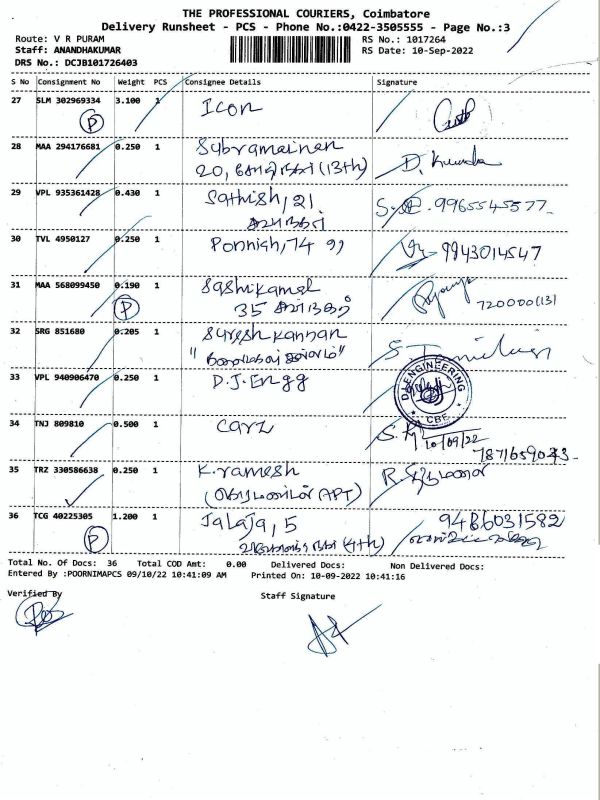 THE PROFESSIONAL COURIERS, Coimbatore
Delivery Runsheet - PCS - Phone No.:0422-3505555 - Page No.:3
Route: V R PURAM RS No.: 1017264
Staff: ANANDHAKUMAR RS Date: 10-Sep-2022
DRS No.: DCJB101726403
S No Consignment No Weight PCS Consignee Details Signature
27 SLM 302969334 3.100 1 Icon
P
28 MAA 294176681 0.250 1 Subramainan
20, (13th)
29 VPL 935361428 0.430 1 Sathish, 21. 9965545577
30 TVL 4950127 0.250 1 Ponniah, 74 9943014547
31 MAA 568099450 0.190 1 Sashikamal
P 35
32 SRG 851680 0.205 1 Suresh kannan
33 VPL 940906470 0.250 1 D.J. Engg
D.J. ENGINEERING
CBE
34 TNJ 809810 0.500 1 Carz
10/09/22
35 TRZ 330586638 0.250 1 K. ramesh
(APT)
36 TCG 40225305 1.200 1 Jalaja, 5 9486031582
P (4th)
Total No. Of Docs: 36 Total COD Amt: 0.00 Delivered Docs: Non Delivered Docs:
Entered By :POORNIMAPCS 09/10/22 10:41:09 AM Printed On: 10-09-2022 10:41:16
Verified By Staff Signature